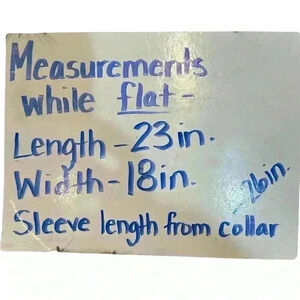 Measurements
while flat -
Length - 23in.
Width - 18in.
Sleeve length from collar
- 26in.